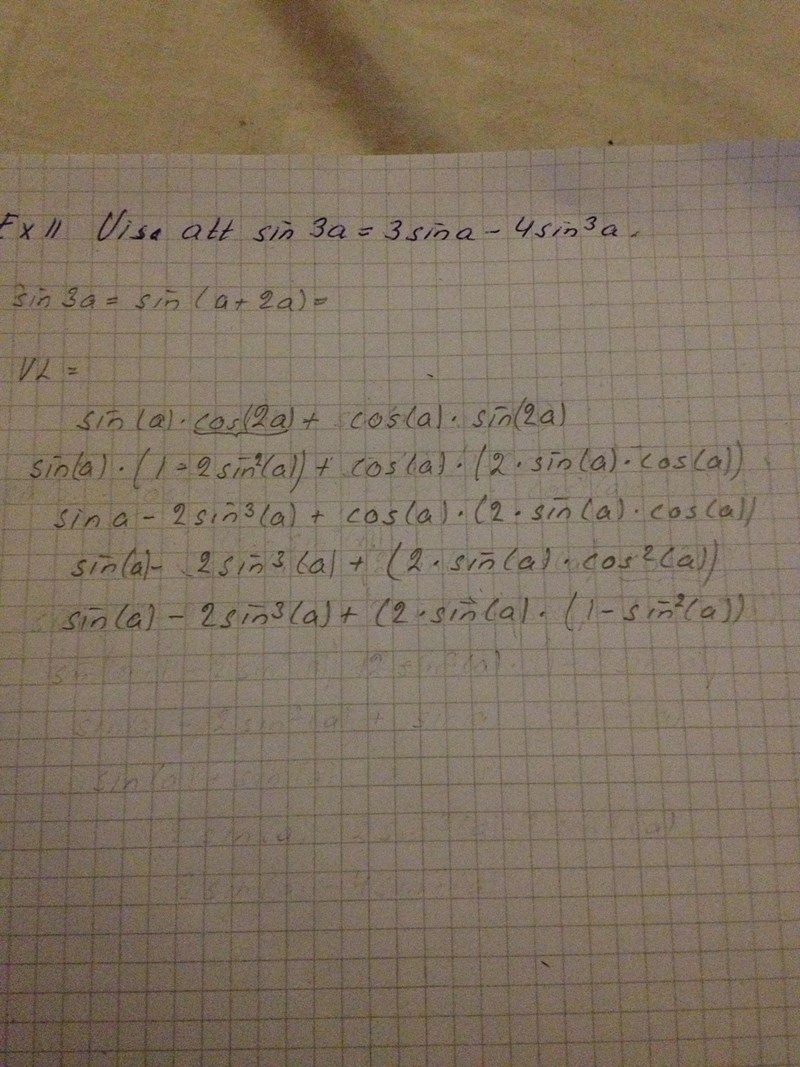 Ex 11 Visa att sin 3a = 3sina - 4sin³a.
sin 3a = sin (a + 2a) =
VL =
sin (a) · cos(2a) + cos(a) · sin(2a)
sin(a) · (1 - 2sin²(a)) + cos(a) · (2 · sin(a) · cos(a))
sin a - 2sin³(a) + cos(a) · (2 · sin(a) · cos(a))
sin(a) - 2sin³(a) + (2 · sin(a) · cos²(a))
sin(a) - 2sin³(a) + (2 · sin(a) · (1 - sin²(a))